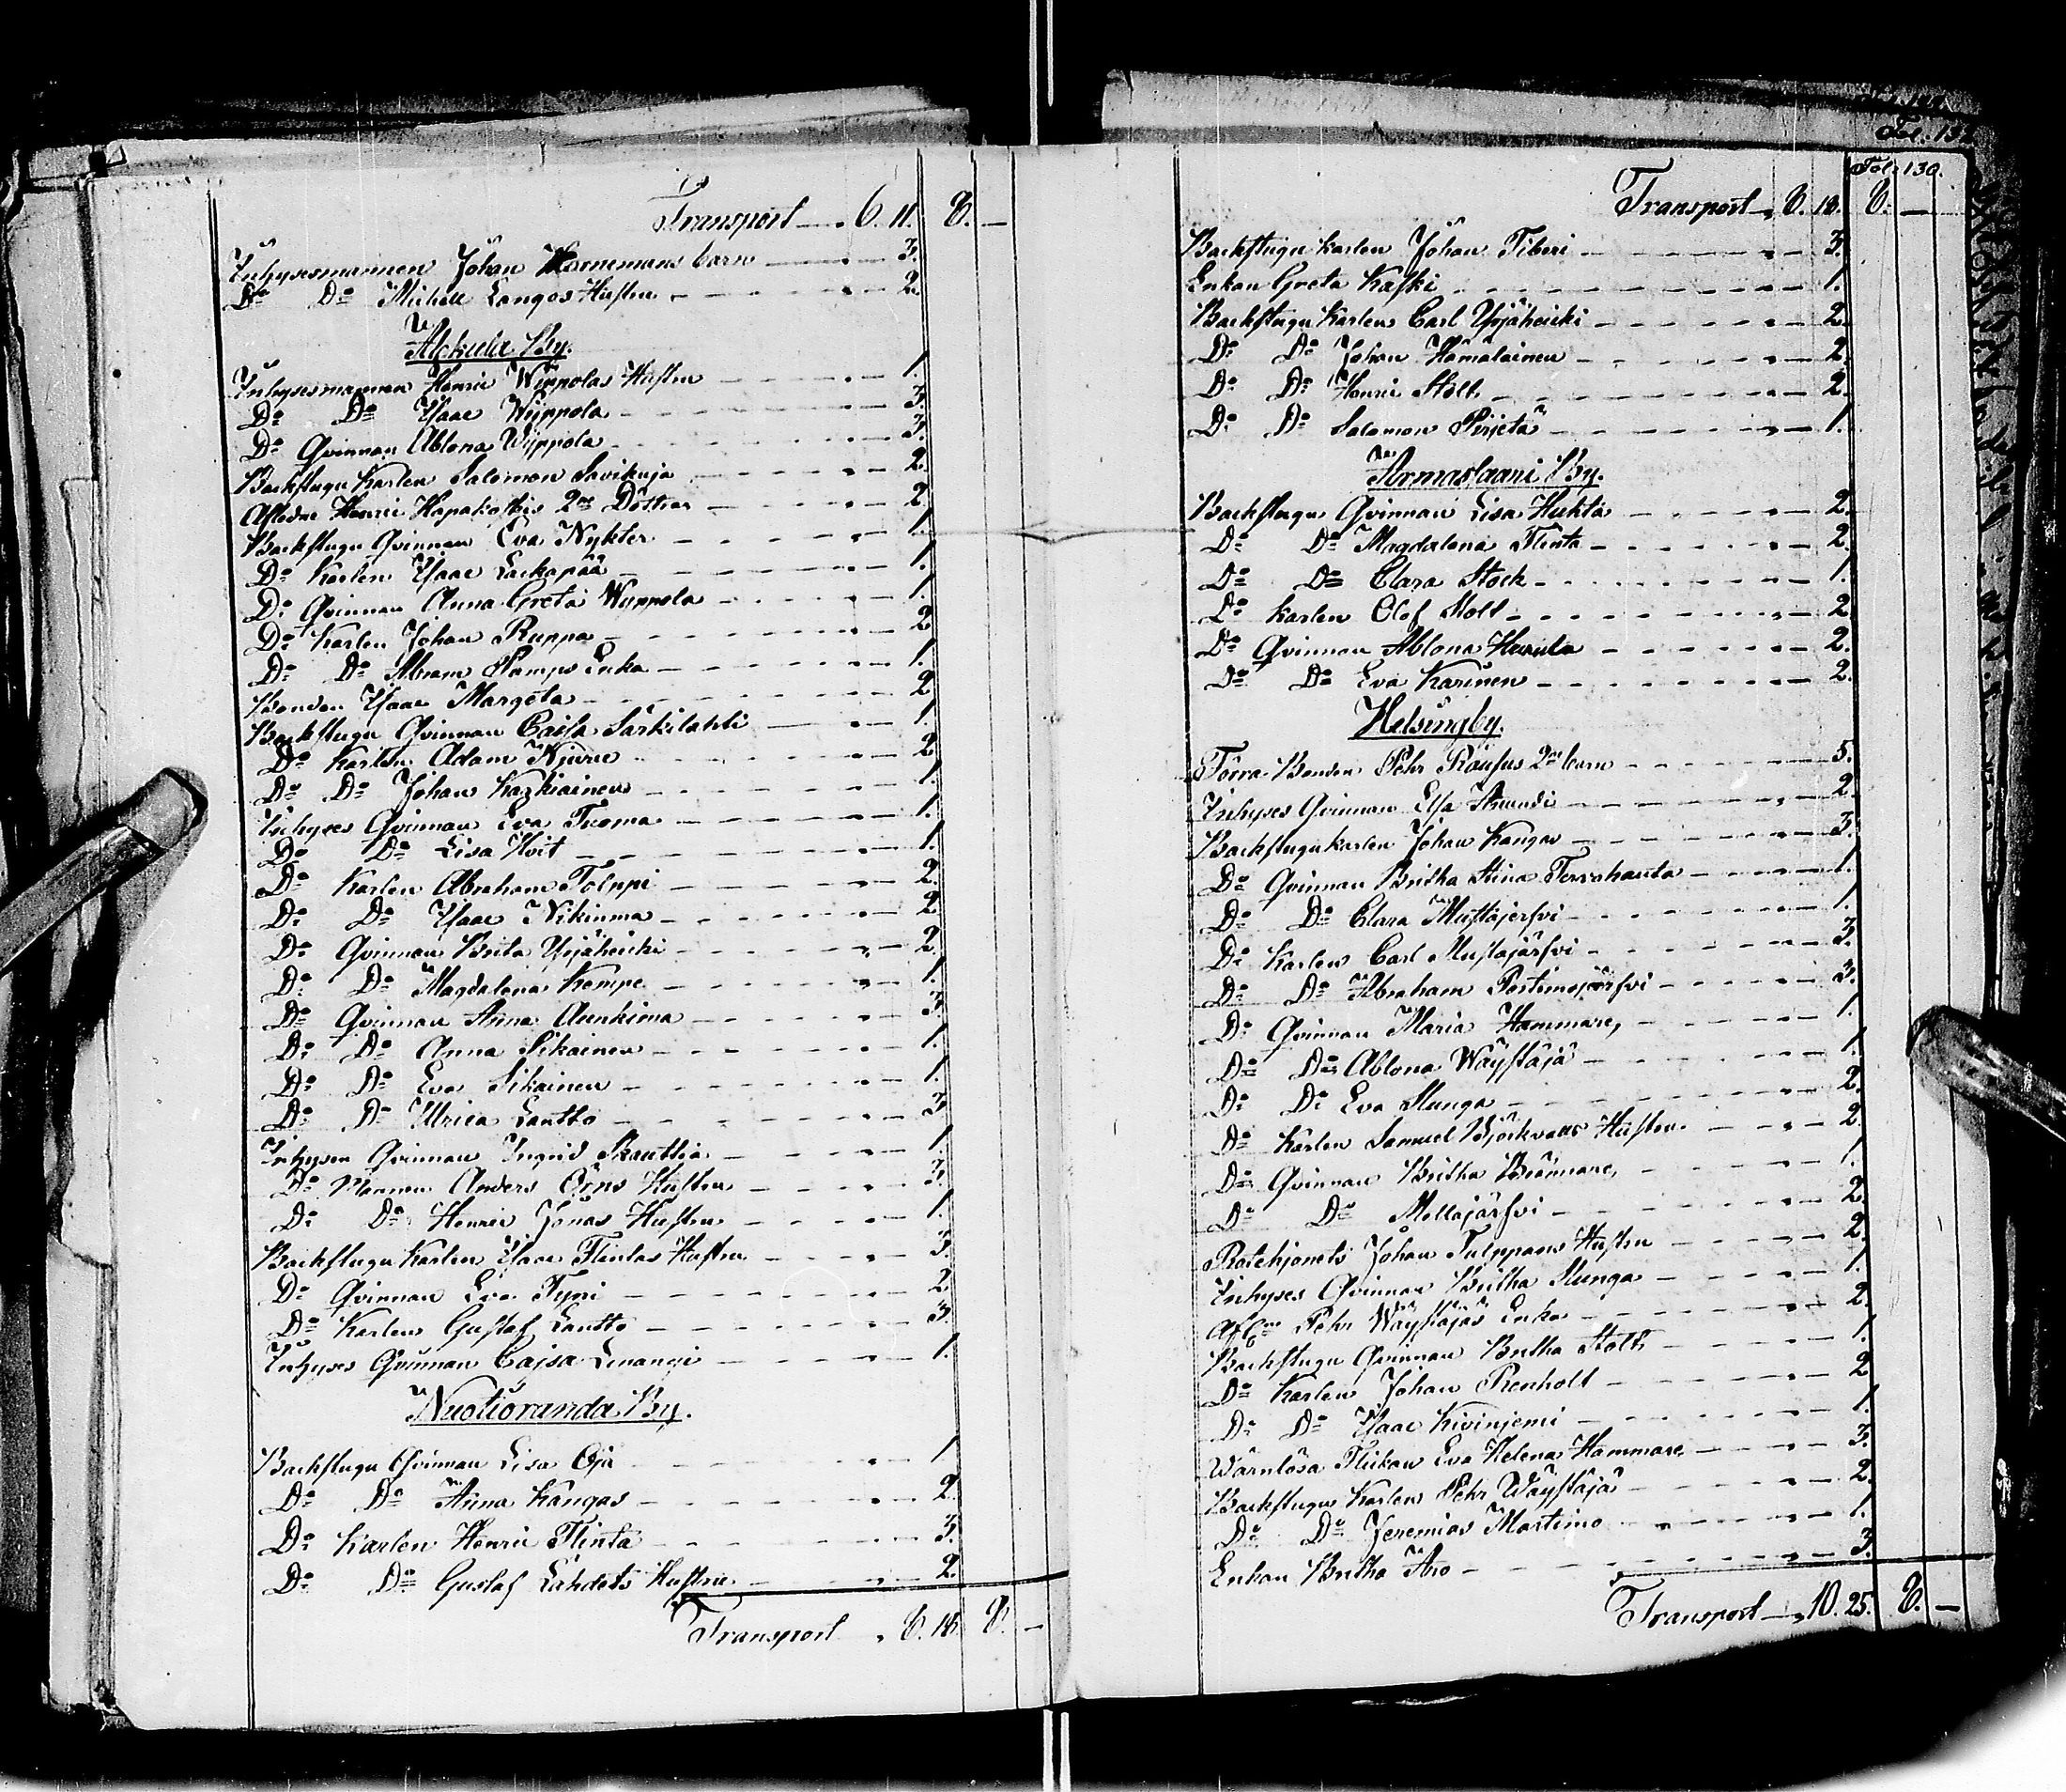 Transport — . 6. 11. 8. —
Inhysesmannen Johan Hornemans barn — 3.
Do Do Michell Langos Hustru — 2.
Alckula By.
Inhysesmannen Henric Wippolas Hustru — 1.
Do Do Isaac Wippola — 3.
Do Qvinnan Ablona Wippola — 3.
Backstugu Karlen Salomon Savikuja — 2.
Afledne Henric Hapakoskis 2ne Döttrar — 2.
Backstugu Qvinnan Eva Nykter — 1.
Do Karlen Isaac Lackapää — 1.
Do Qvinnan Anna Greta Wippola — 1.
Do Karlen Johan Ruppa — 2.
Do Do Abram Kamps Enka — 1.
Bonden Isaac Margeta — 2
Backstugu Qvinnan Caisa Särkilahti — 1.
Do Karlen Adam Niuru — 2.
Do Do Johan Kazkiainen — 1.
Inhyses Qvinnan Eva Tuoma — 1.
Do Do Lisa Hvit — 1.
Do Karlen Abraham Tolppi — 2.
Do Do Isaac Nikinma — 2.
Do Qvinnan Brita Yrjäheicki — 2.
Do Do Magdalena Kempe — 1.
Do Qvinnan Anna Aunkima — 3.
Do Do Anna Sikainen — 1.
Do Do Eva Sikainen — 1.
Do Do Ulrica Lantto — 3.
Inhyses Qvinnan Ingrid Skauttia — 1.
Do Mannen Anders Örns Hustru — 3.
Do Do Henric Jonas Hustru — 1.
Backstugu Karlen Isaac Flintas Hustru — 3.
Do Qvinnan Eva Tyni — 2
Do Karlen Gustaf Lantto — 3.
Inhyses Qvinnan Cajsa Linangi — 1.
Nuotioranda By.
Backstugu Qvinnan Lisa Oja — 1
Do Do Anna Kangas — 2.
Do Karlen Henric Flinta — 3.
Do Do Gustaf Lahdets Hustru — 2.
Transport . 8. 18. 8. —
Fol. 130.
Transport . 8. 18. 8. —
Backstugu karlen Johan Tiberi — 3.
Enkan Greta Kaski — 1.
Backstugu Karlen Carl Yrjäheicki — 2.
Do Do Johan Hämäläinen — 2.
Do Do Henric Stolt — 2.
Do Do Salomon Pirjetä — 1.
Armaslaani By.
Backstugu Qvinnan Lisa Huhta — 2.
Do Do Magdalena Flinta — 2.
Do Do Clara Stock — 1.
Do karlen Olof Stolt — 2.
Do Qvinnan Ablona Huula — 2.
Do Do Eva Karinen — 2.
Helsingby.
Torra Bonden Pehr Räufus 2ne barn — 5.
Inhyses Qvinnan Elsa Strandi — 2.
Backstugukarlen Johan Kangas — 3.
Do Qvinnan Britha Stina Tervahauta — 1.
Do Do Clara Mustajerfvi — 1.
Do Karlen Carl Mustajärfvi — 3.
Do Do Abraham Portimojärfvi — 3.
Do Qvinnan Maria Hammare, — 1.
Do Do Ablona Wäystäjä — 1.
Do Do Eva Slunga — 2.
Do Karlen Samuel Björkvalls Hustru — 2.
Do Qvinnan Britha Brännare, — 1.
Do Do Mellajärfvi — 2.
Rotehjonets Johan Tulppans Hustru — 2.
Inhyses Qvinnan Britha Slunga — 1.
Afl:ne Pehr Wäystäjäs Enka — 2.
Backstugu Qvinnan Britha Stolt — 1.
Do Karlen Johan Renholt — 2
Do Do Isaac Kivinjemi — 1.
Wärnlösa Flickan Eva Helena Hammare — 3.
Backstugu Karlen Pehr Wäystäjä — 2.
Do Do Jeremias Martimo — 1.
Enkan Britha Aro — 3.
Transport . 10. 25. 8. —